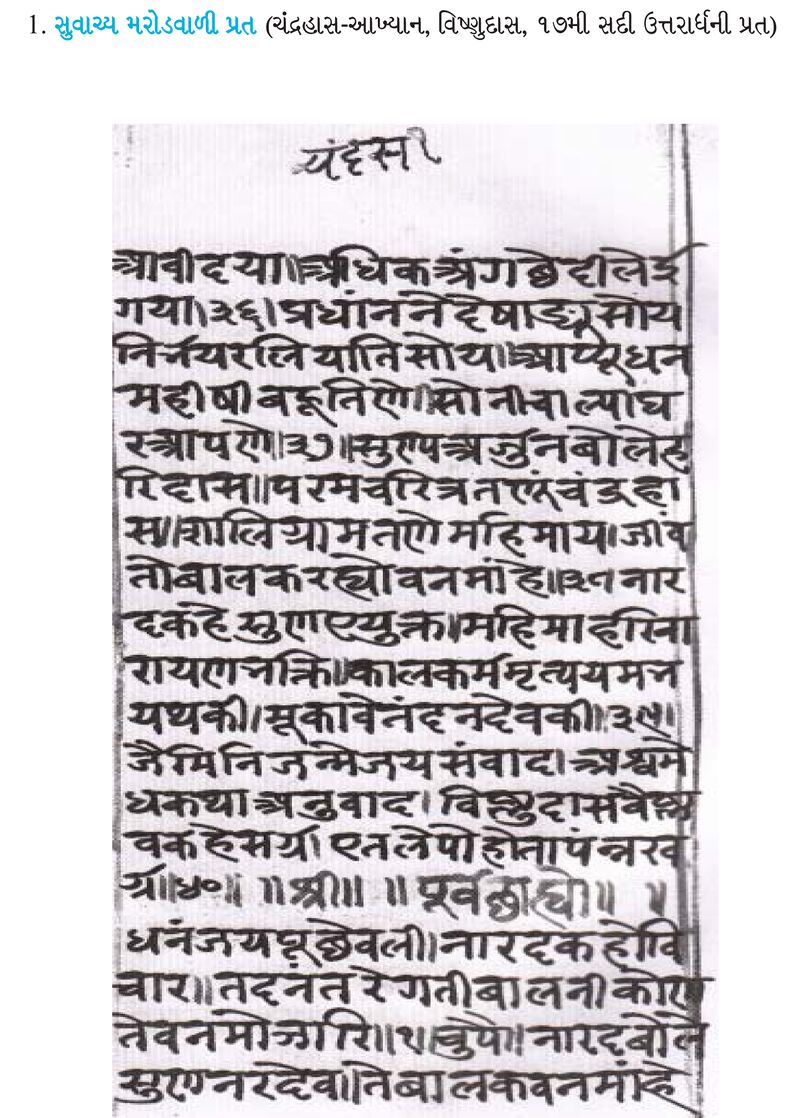 1. સુવાચ્ય મરોડવાળી પ્રત (ચંદ્રહાસ-આખ્યાન, વિષ્ણુદાસ, ૧૭મી સદી ઉત્તરાર્ધની પ્રત)
आवीदया॥अधिकअंगछेदीलेई
गया।३६।प्रधांननेदेषाड्युसोय
निर्नयरलियातिसोय॥
महीषीबहूतिणे॥सोनीचाल्योघ
रआपणे॥३७॥सुणपअर्जुनबोलेह
रिदास॥परमचरित्रतणूंचंद्रहा
स॥शालिग्रामतणोमहिमाय।जीव
तोबालकरह्योवनमांहे॥३८नार
दकहेसुणएयुक्त।महिमाहरिना
रायणभक्ति॥कालकर्ममृत्ययमभ
यथकी।मूकावेनंदनदेवकी॥३९।
जैमिनिजन्मेजयसंवाद।अश्वमे
धकथाअनुवाद।विष्णुदासवैष्ण
वकहेसर्ग।एतलेपोहोतो
॥४०॥ ॥श्री॥ ॥पूर्वछाह्यो॥ ॥
धनंजयपूछेवली।नारदकहोवि
चार॥तदनंतरेगतीबालनीकोण
तेवनमोझारि॥१।चुपै॥नारदबोले
सुणनरदेव॥तेबालकवनमांहे